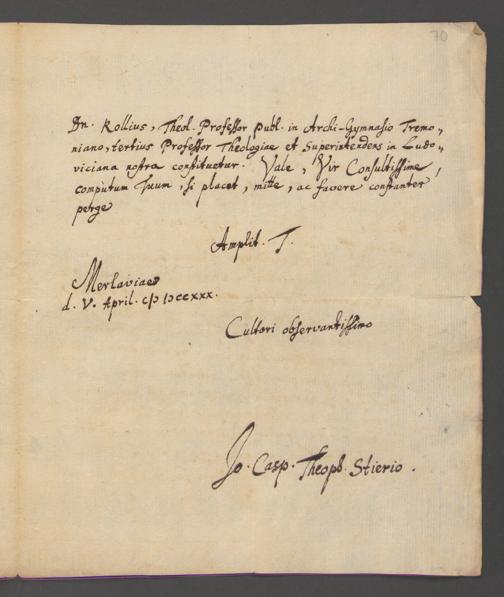 70
Dn. Kollius, Theol. Professor publ. in Archi-Gymnasio Tremo„
niano, tertius Professor Theologiae et Superintendens in Ludo„
viciana nostra constituetur. Vale, Vir Consultissime,
computum Tuum, si placet, mitte, ac favere constanter
perge
Amplit. T.
Merlaviae
d. V. April. cIɔ Iɔccxxx.
Cultori observantissimo
Jo. Casp. Theoph. Stierio.